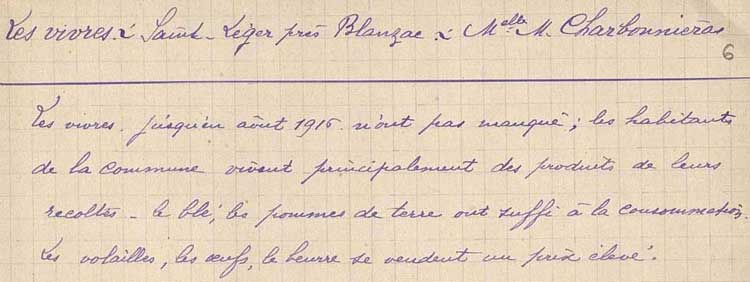 Les vivres à Saint-Léger près Blanzac : Melle M. Charbonnieras
6
Les vivres jusqu'en août 1916 n'ont pas manqué ; les habitants
de la commune vivent principalement des produits de leurs
recoltes - le blé, les pommes de terre ont suffi à la consommation.
Les volailles, les œufs, le beurre se vendent un prix élevé.